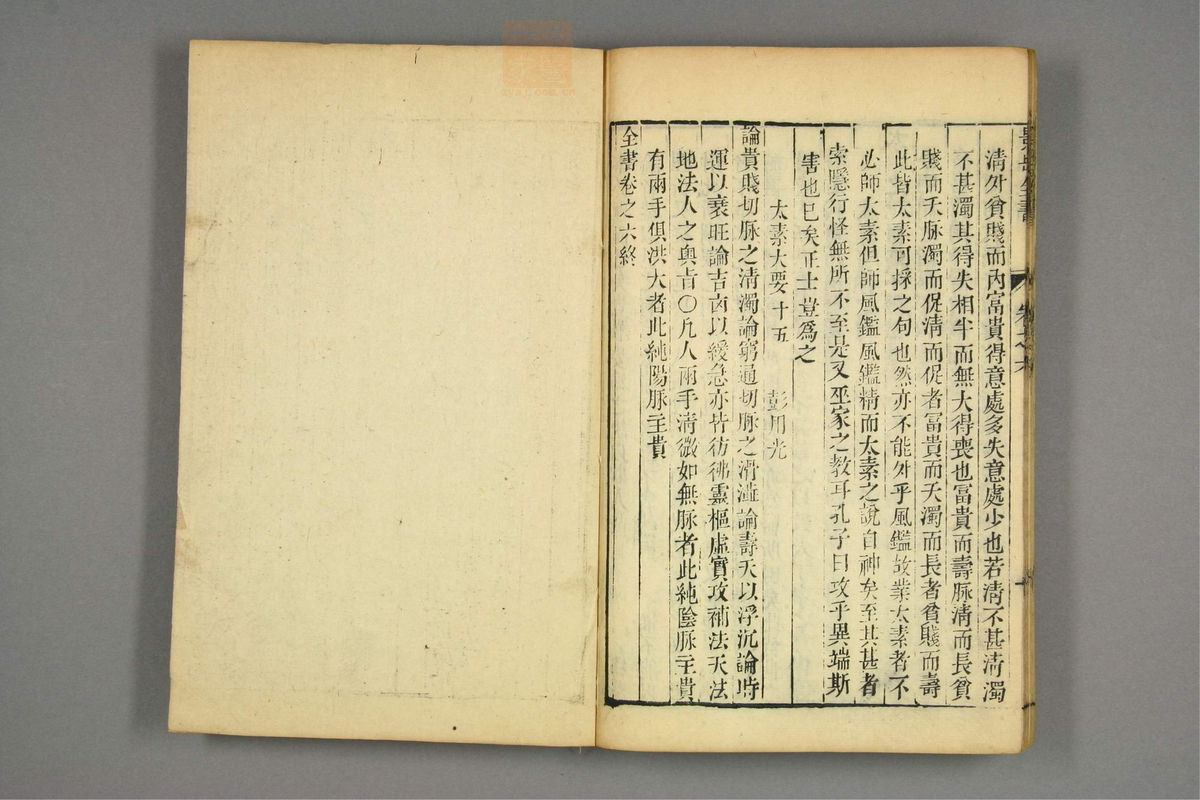 景岳全書
卷之六
清外貧賤而內富貴得意處多失意處少也若清不甚清濁
不甚濁其得失相半而無大得喪也富貴而壽脉清而長貧
賤而夭脉濁而促清而促者富貴而夭濁而長者貧賤而壽
此皆太素可採之句也然亦不能外乎風鑑故業太素者不
必師太素但師風鑑風鑑精而太素之說自神矣至其甚者
索隱行怪無所不至是又巫家之教耳孔子曰攻乎異端斯
害也已矣正士豈爲之
太素大要十五 彭用光
論貴賤切脉之清濁論窮通切脉之滑澁論壽夭以浮沉論時
運以衰旺論吉凶以緩急亦皆彷彿靈樞虛實攻補法天法
地法人之奥旨○凡人兩手清微如無脉者此純陰脉主貴
有兩手俱洪大者此純陽脉主貴
全書卷之六終